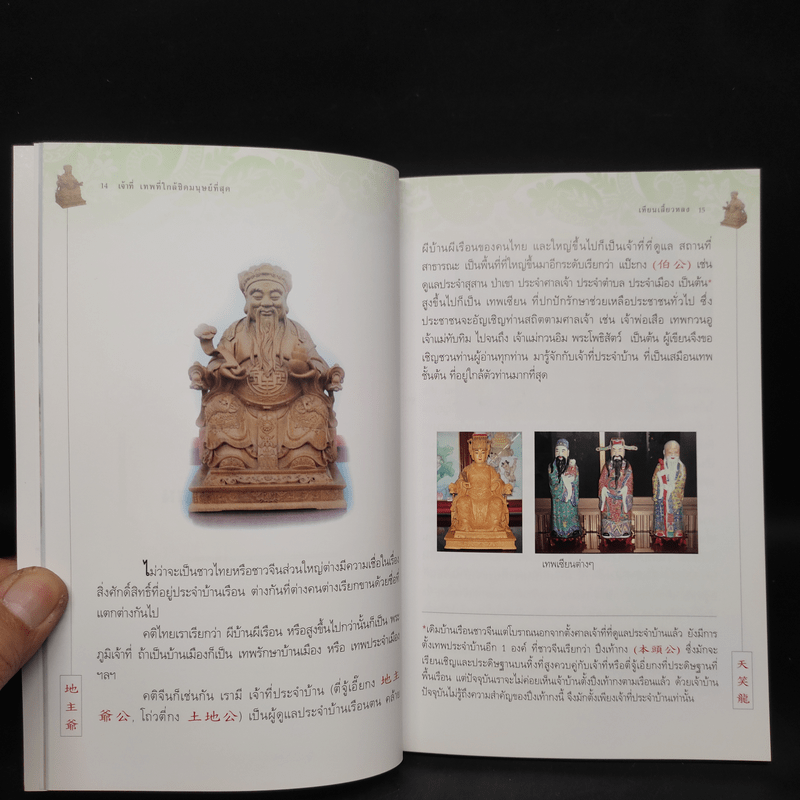 14 เจ้าที่ เทพที่ใกล้ชิดมนุษย์ที่สุด
ไม่ว่าจะเป็นชาวไทยหรือชาวจีนส่วนใหญ่ต่างมีความเชื่อในเรื่อง
สิ่งศักดิ์สิทธิ์ที่อยู่ประจำบ้านเรือน ต่างกันที่ต่างคนต่างเรียกขานด้วยชื่อที่
แตกต่างกันไป
คติไทยเราเรียกว่า ผีบ้านผีเรือน หรือสูงขึ้นไปกว่านั้นก็เป็น พระ
ภูมิเจ้าที่ ถ้าเป็นบ้านเมืองก็เป็น เทพรักษาบ้านเมือง หรือ เทพประจำเมือง
ฯลฯ
คติจีนก็เช่นกัน เรามี เจ้าที่ประจำบ้าน (ตี่จู้เอี๊ยกง 地主
爺公, โถ่วตี่กง 土地公) เป็นผู้ดูแลประจำบ้านเรือนตน คล้าย
地主爺
เทียนเสี่ยวหลง 15
ผีบ้านผีเรือนของคนไทย และใหญ่ขึ้นไปก็เป็นเจ้าที่ที่ดูแล สถานที่
สาธารณะ เป็นพื้นที่ที่ใหญ่ขึ้นมาอีกระดับเรียกว่า แป๊ะกง (伯公) เช่น
ดูแลประจำสุสาน ป่าเขา ประจำศาลเจ้า ประจำตำบล ประจำเมือง เป็นต้น*
สูงขึ้นไปก็เป็น เทพเซียน ที่ปกปักรักษาช่วยเหลือประชาชนทั่วไป ซึ่ง
ประชาชนจะอัญเชิญท่านสถิตตามศาลเจ้า เช่น เจ้าพ่อเสือ เทพกวนอู
เจ้าแม่ทับทิม ไปจนถึง เจ้าแม่กวนอิม พระโพธิสัตว์ เป็นต้น ผู้เขียนจึงขอ
เชิญชวนท่านผู้อ่านทุกท่าน มารู้จักกับเจ้าที่ประจำบ้าน ที่เป็นเสมือนเทพ
ชั้นต้น ที่อยู่ใกล้ตัวท่านมากที่สุด
เทพเซียนต่างๆ
*เดิมบ้านเรือนชาวจีนแต่โบราณนอกจากตั้งศาลเจ้าที่ที่ดูแลประจำบ้านแล้ว ยังมีการ
ตั้งเทพประจำบ้านอีก 1 องค์ ที่ชาวจีนเรียกว่า ปึงเท้ากง (本頭公) ซึ่งมักจะ
เรียนเชิญและประดิษฐานบนหิ้งที่สูงควบคู่กับเจ้าที่หรือตี่จู้เอี๊ยกงที่ประดิษฐานที่
พื้นเรือน แต่ปัจจุบันเราจะไม่ค่อยเห็นเจ้าบ้านตั้งปึงเท้ากงตามเรือนแล้ว ด้วยเจ้าบ้าน
ปัจจุบันไม่รู้ถึงความสำคัญของปึงเท้ากงนี้ จึงมักตั้งเพียงเจ้าที่ประจำบ้านเท่านั้น
天笑龍